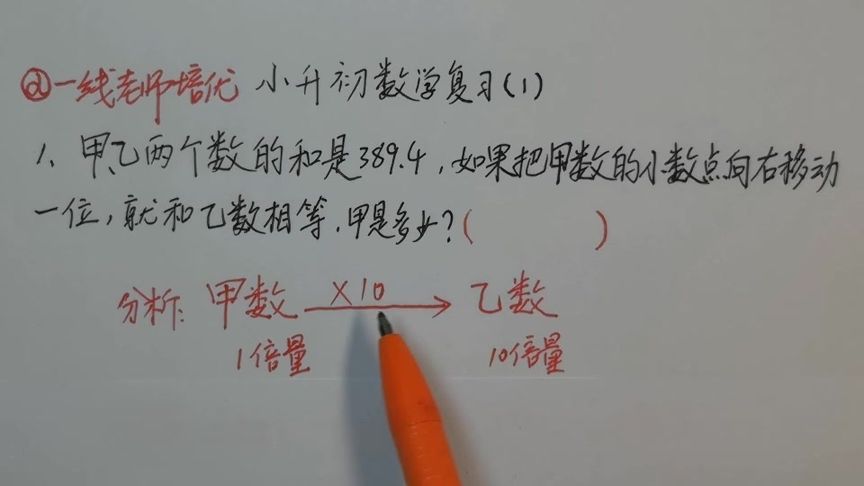 @一线老师培优 小升初数学复习(1)
1、甲、乙两个数的和是389.4,如果把甲数的小数点向右移动
一位,就和乙数相等.甲是多少?(    )
分析: 甲数 ×10 乙数
1倍量 10倍量